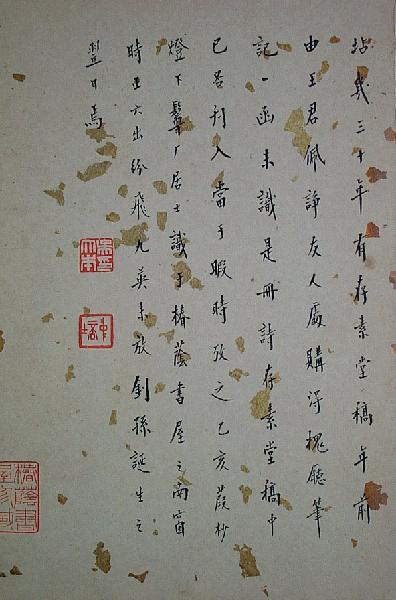 坫幾三十年有存素堂稿年前
由王君佩諍友人處購得槐廳筆
記一函未識是冊詩存素堂稿中
已否刊入當于暇時攷之乙亥葭杪
燈下居士識于椿蔭書屋之南窗
時亚六出紛飛九英未放劍孫誕生之
翌日焉